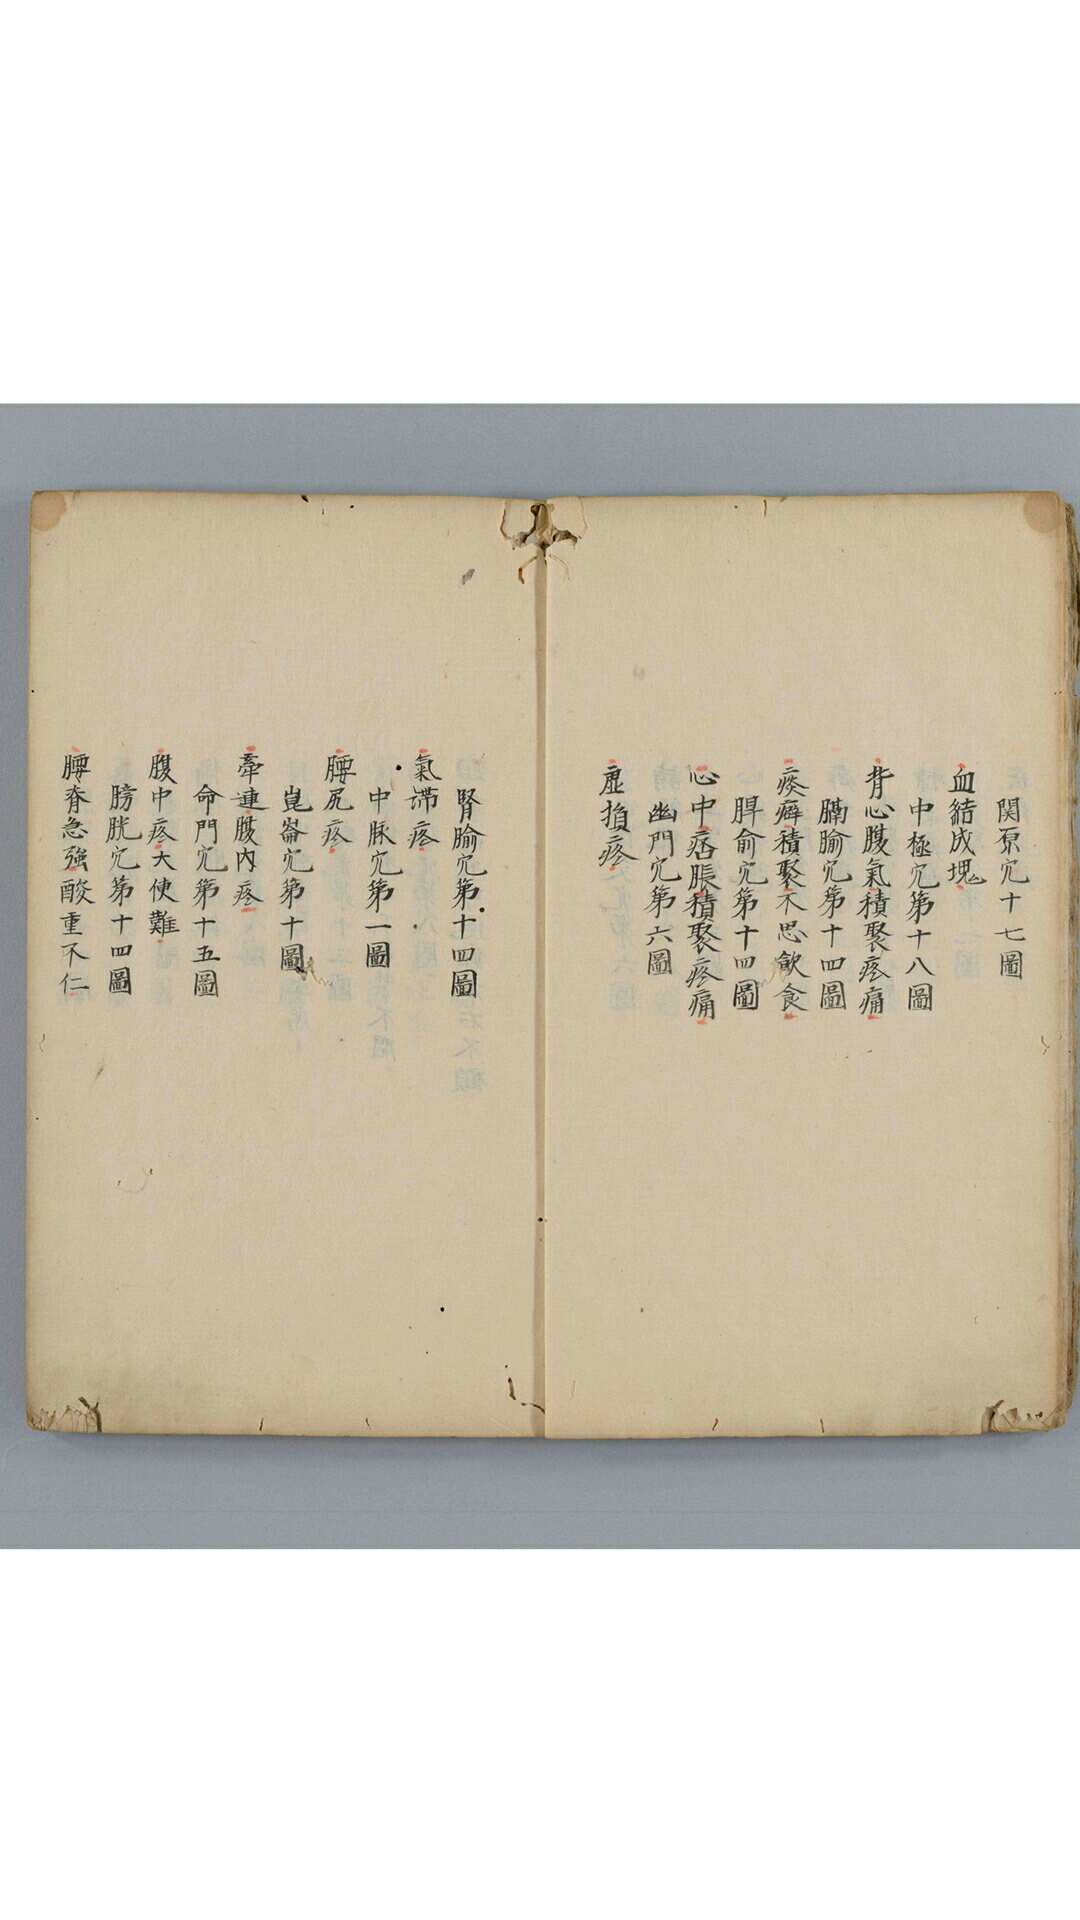 関原穴十七圖
血結成塊
中極穴第十八圖
背心腹氣積聚疼痛
膈腧穴第十四圖
痰癖積聚不思飲食
脾俞穴第十四圖
心中痞脹積聚疼痛
幽門穴第六圖
虚損疼
腎腧穴第十四圖
氣滞疼
中脉穴第一圖
腰尻疼
崑崙穴第十圖
牽連腹內疼
命門穴第十五圖
腹中疼大使難
膀胱穴第十四圖
腰脊急強酸重不仁